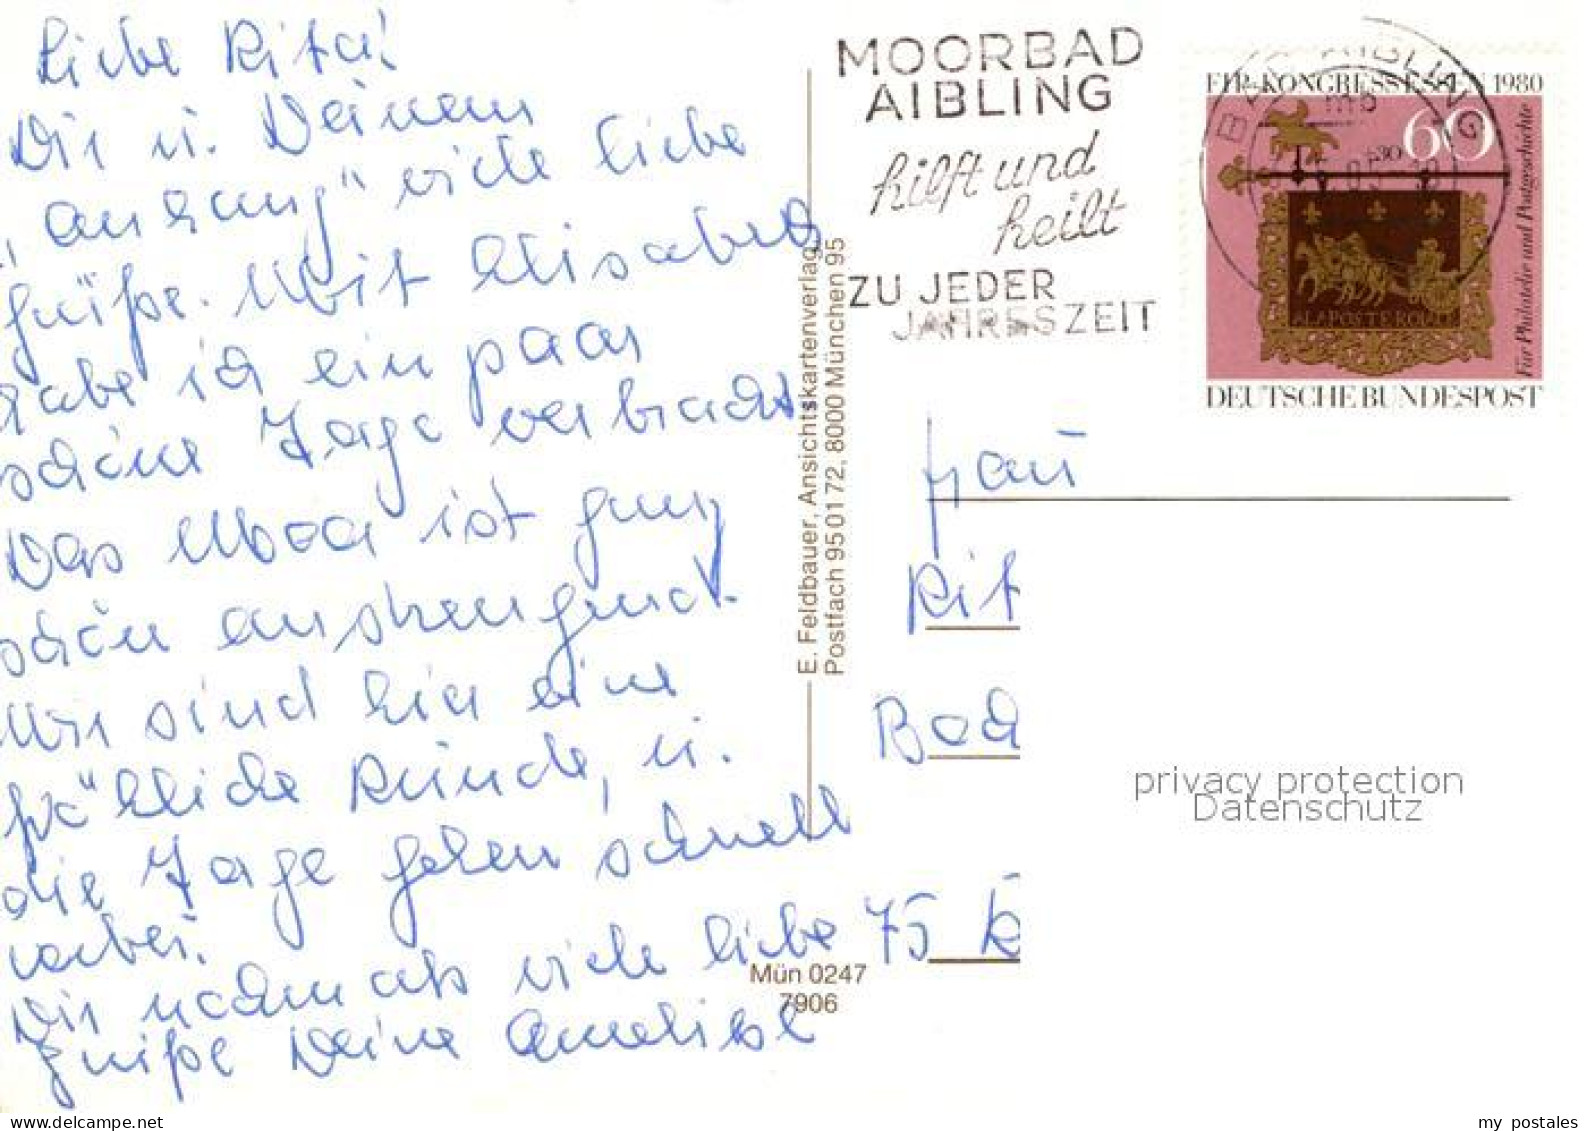 Liebe Rita!
Dir u. Deinem
„Anhang“ viele liebe
Grüße. Mit Elisabeth
habe ich ein paar
schöne Tage verbracht.
Das Moor ist ganz
schön anstrengend.
Wir sind hier eine
fröhliche Runde, u.
die Tage gehen schnell
vorbei.
Dir nochmals viele liebe
Grüße Deine
E. Feldbauer, Ansichtskartenverlag,
Postfach 95 01 72, 8000 München 95
Mün 0247
7906
MOORBAD
AIBLING
hilft und
heilt
ZU JEDER
JAHRESZEIT
BAD AIBLING
mb
FIP-KONGRESS ESSEN 1980
60
+30
Für Philatelie und Postgeschichte
A LA POSTE ROYALE
DEUTSCHE BUNDESPOST
Frau
Rit
Bad
75 K
privacy protection
Datenschutz
www.delcampe.net
my_postales